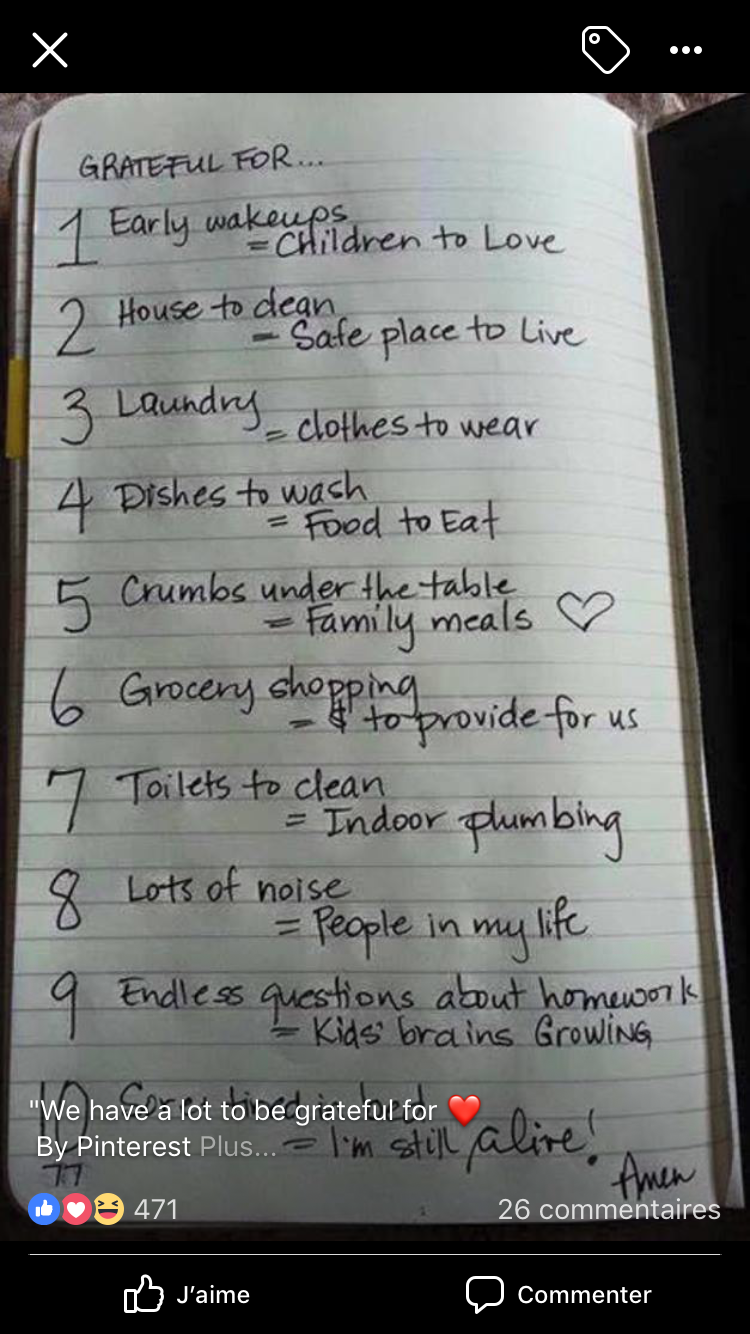 GRATEFUL FOR...
1 Early wakeups
= Children to Love
2 House to clean
= Safe place to Live
3 Laundry
= clothes to wear
4 Dishes to wash
= Food to Eat
5 Crumbs under the table
= Family meals ♡
6 Grocery shopping
= $ to provide for us
7 Toilets to clean
= Indoor plumbing
8 Lots of noise
= People in my life
9 Endless questions about homework
= Kids' brains GROWING
10
"We have a lot to be grateful for ❤️
By Pinterest Plus...
= I'm still alive!
Amen
471
26 commentaires
J'aime
Commenter